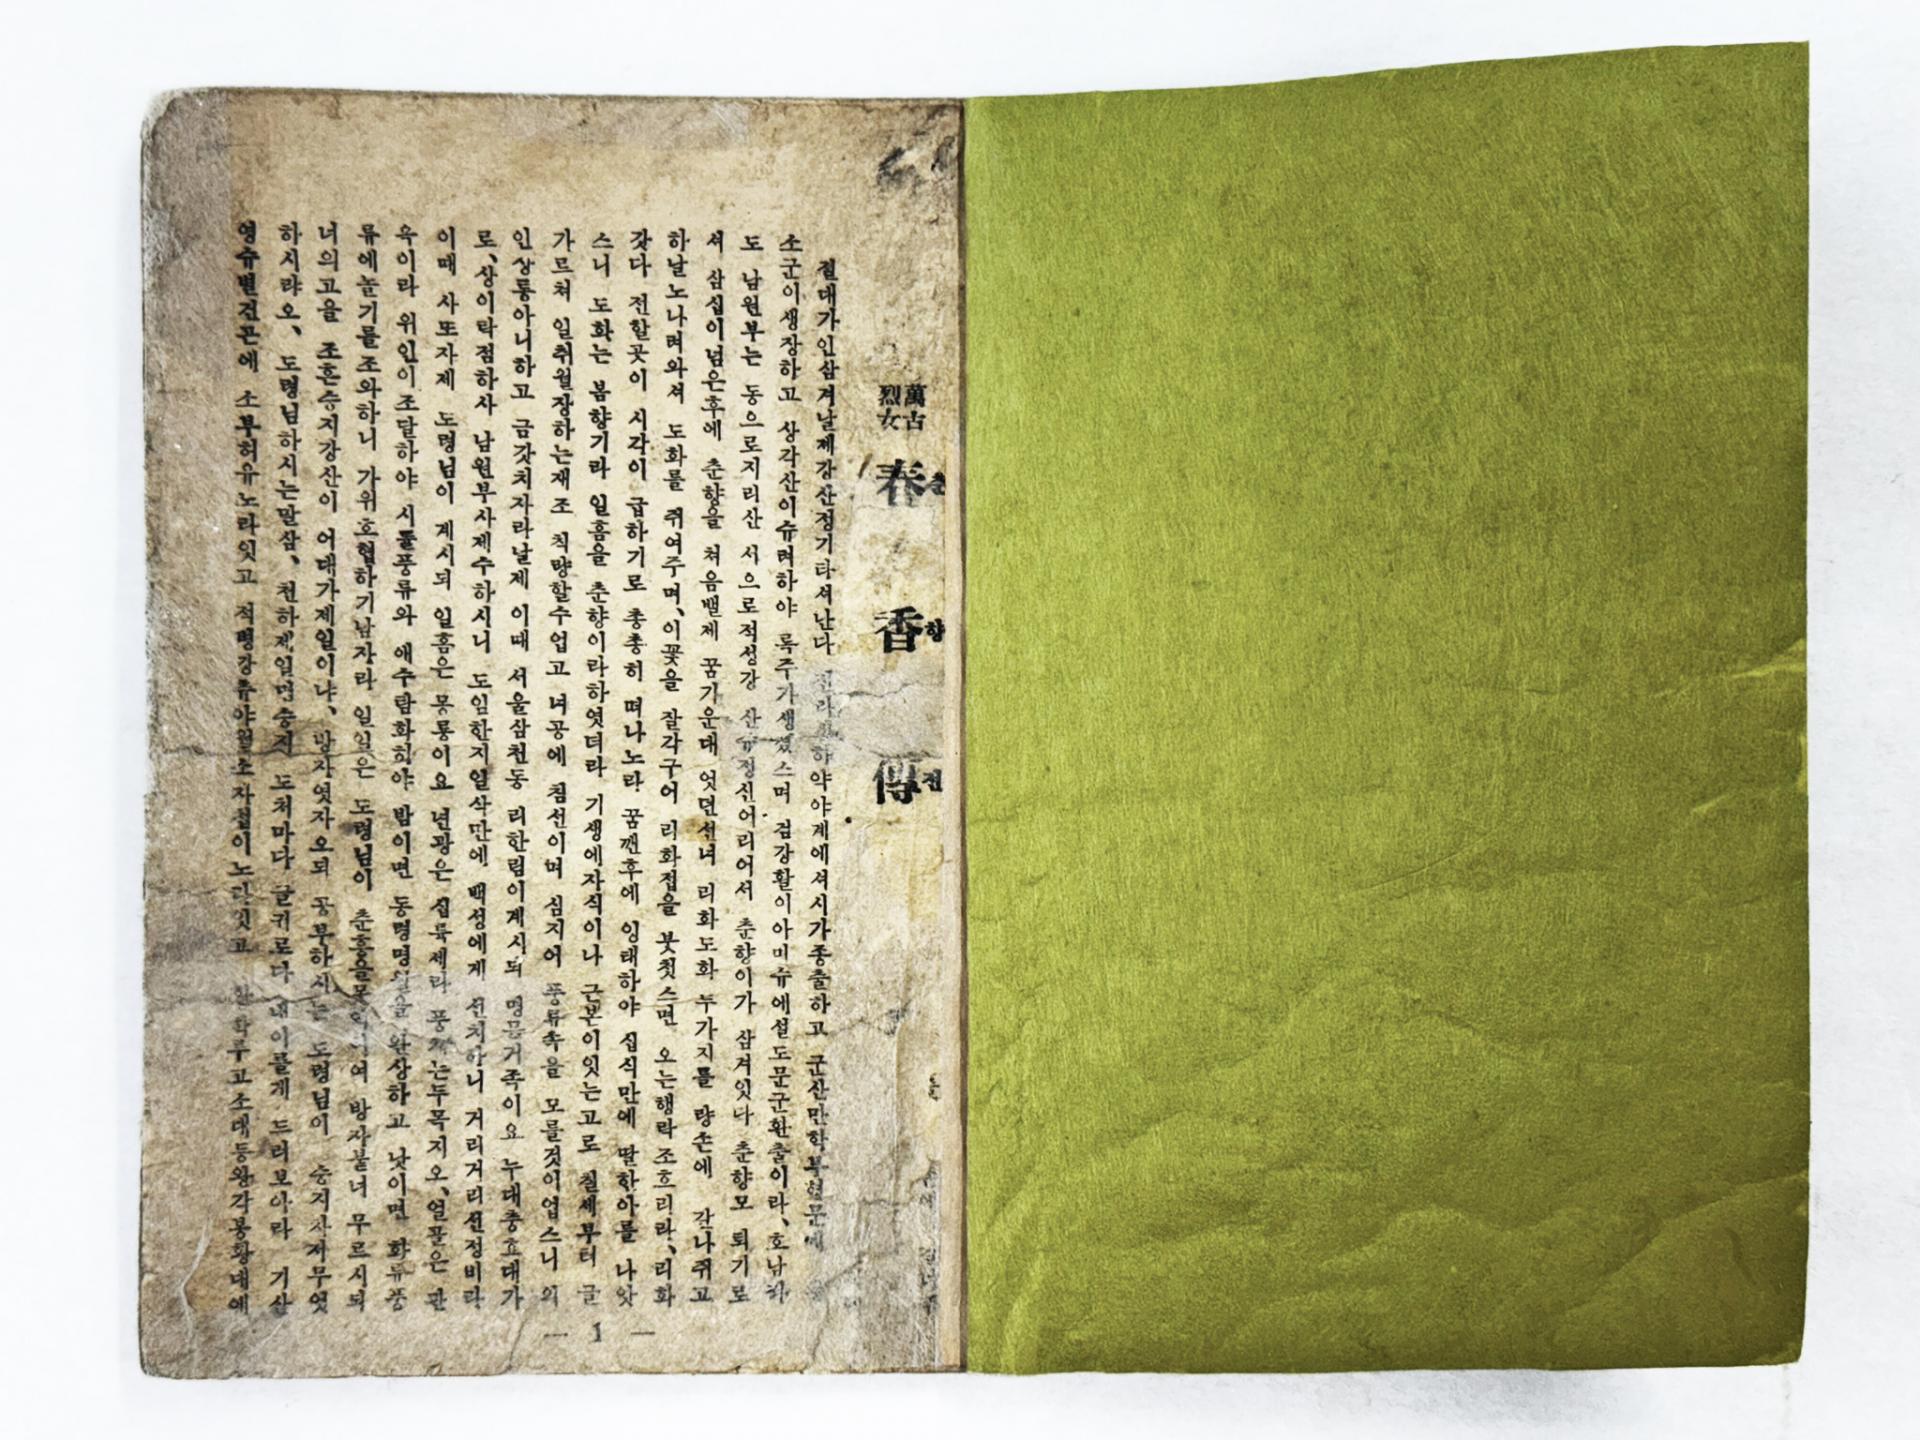 萬古
烈女
春香傳
향
전
절대가인삼겨날제강산정기타셔난다 약야계에셔시가종출하고 군산만학부형문에
소군이생장하고 상각산이슈려하야 록주가생겻스며 검강활이아미슈에설도문군환출이라、호남하
도 남원부는 동으로지리산 서으로적성강 산슈정신어리어서 춘향이가 삼겨잇다 춘향모 퇴기로
셔 삼십이넘은후에 춘향을 쳐음밸제 꿈기운대 엇던선녀 리화도화 두가지를 량손에 갈나쥐고
하날노나려와셔 도화를 쥐여주며、이꽃을 잘각구어 리화접을 붓첫스면 오는행락조흐리라、리화
갓다 전할곳이 시각이 급하기로 총총히 떠나노라 꿈깬후에 잉태하야 십식만에 딸한아를 나앗
스니 도화는 봄향기라 일흠을 춘향이라하엿더라 기생에자식이나 근본이잇는고로 칠세부터 글
가르쳐 일취월장하는재조 칙량할수업고 녀공에 침선이며 심지어 풍류속을 모를것이업스니 의
인상통아니하고 금갓치자라날제 이때 서울삼천동 리한림이계시되 명문거족이요 누대충효대가
로、상이락점하사 남원부사제수하시니 도임한지일삭만에 백성에게 선치하니 거리거리선정비라
이때 사또자제 도령님이 계시되 일흠은 몽룡이요 년광은 십륙세라 풍채는두목지오、얼골은 관
옥이라 위인이조달하야 시률풍류와 애수람화하야 밤이면 동령명월을 완상하고 낫이면 화류풍
류에놀기를조와하니 가위호협하기남자라 일일은 도령님이 춘흥을못익이여 방자불너 무르시되
너의고을 조흔승지강산이 어대가제일이냐、방자엿자오되 공부하시는 도령님이 승지차저무엇
하시랴오、 도령님하시는말삼、천하제일명승지 도처마다 글귀로다 내이를게 드러보아라 기산
영슈별건곤에 소부허유노라잇고 적벽강츄야월소자첨이노라잇고 황학루고소대등왕각봉황대에
— 1 —